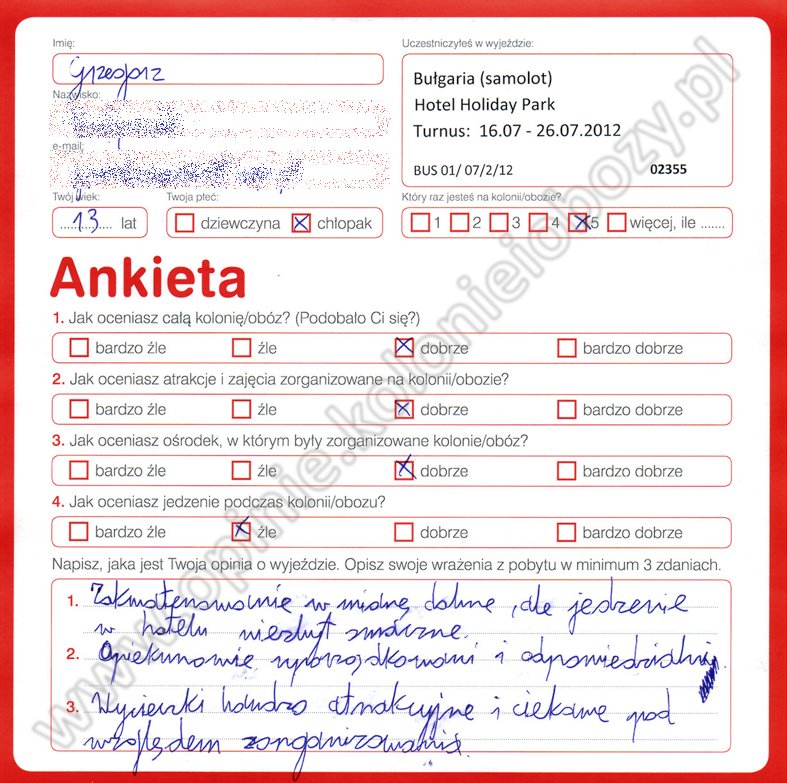 Imię:
Grzegorz
Uczestniczyłeś w wyjeździe:
Bułgaria (samolot)
Hotel Holiday Park
Turnus: 16.07 - 26.07.2012
BUS 01/ 07/2/12 02355
Nazwisko:
e-mail:
Twój wiek:
13 lat
Twoja płeć:
dziewczyna chłopak
Który raz jesteś na kolonii/obozie?
1 2 3 4 5 więcej, ile .......
Ankieta
1. Jak oceniasz całą kolonię/obóz? (Podobało Ci się?)
bardzo źle źle dobrze bardzo dobrze
2. Jak oceniasz atrakcje i zajęcia zorganizowane na kolonii/obozie?
bardzo źle źle dobrze bardzo dobrze
3. Jak oceniasz ośrodek, w którym były zorganizowane kolonie/obóz?
bardzo źle źle dobrze bardzo dobrze
4. Jak oceniasz jedzenie podczas kolonii/obozu?
bardzo źle źle dobrze bardzo dobrze
Napisz, jaka jest Twoja opinia o wyjeździe. Opisz swoje wrażenia z pobytu w minimum 3 zdaniach.
1. Zakwaterowanie w miarę dobre, ale jedzenie
w hotelu niezbyt smaczne.
2. Opiekunowie uporządkowani i odpowiedzialni.
3. Wycieczki bardzo atrakcyjne i ciekawe pod
względem zorganizowania.
www.opinie.kolonieiobozy.pl